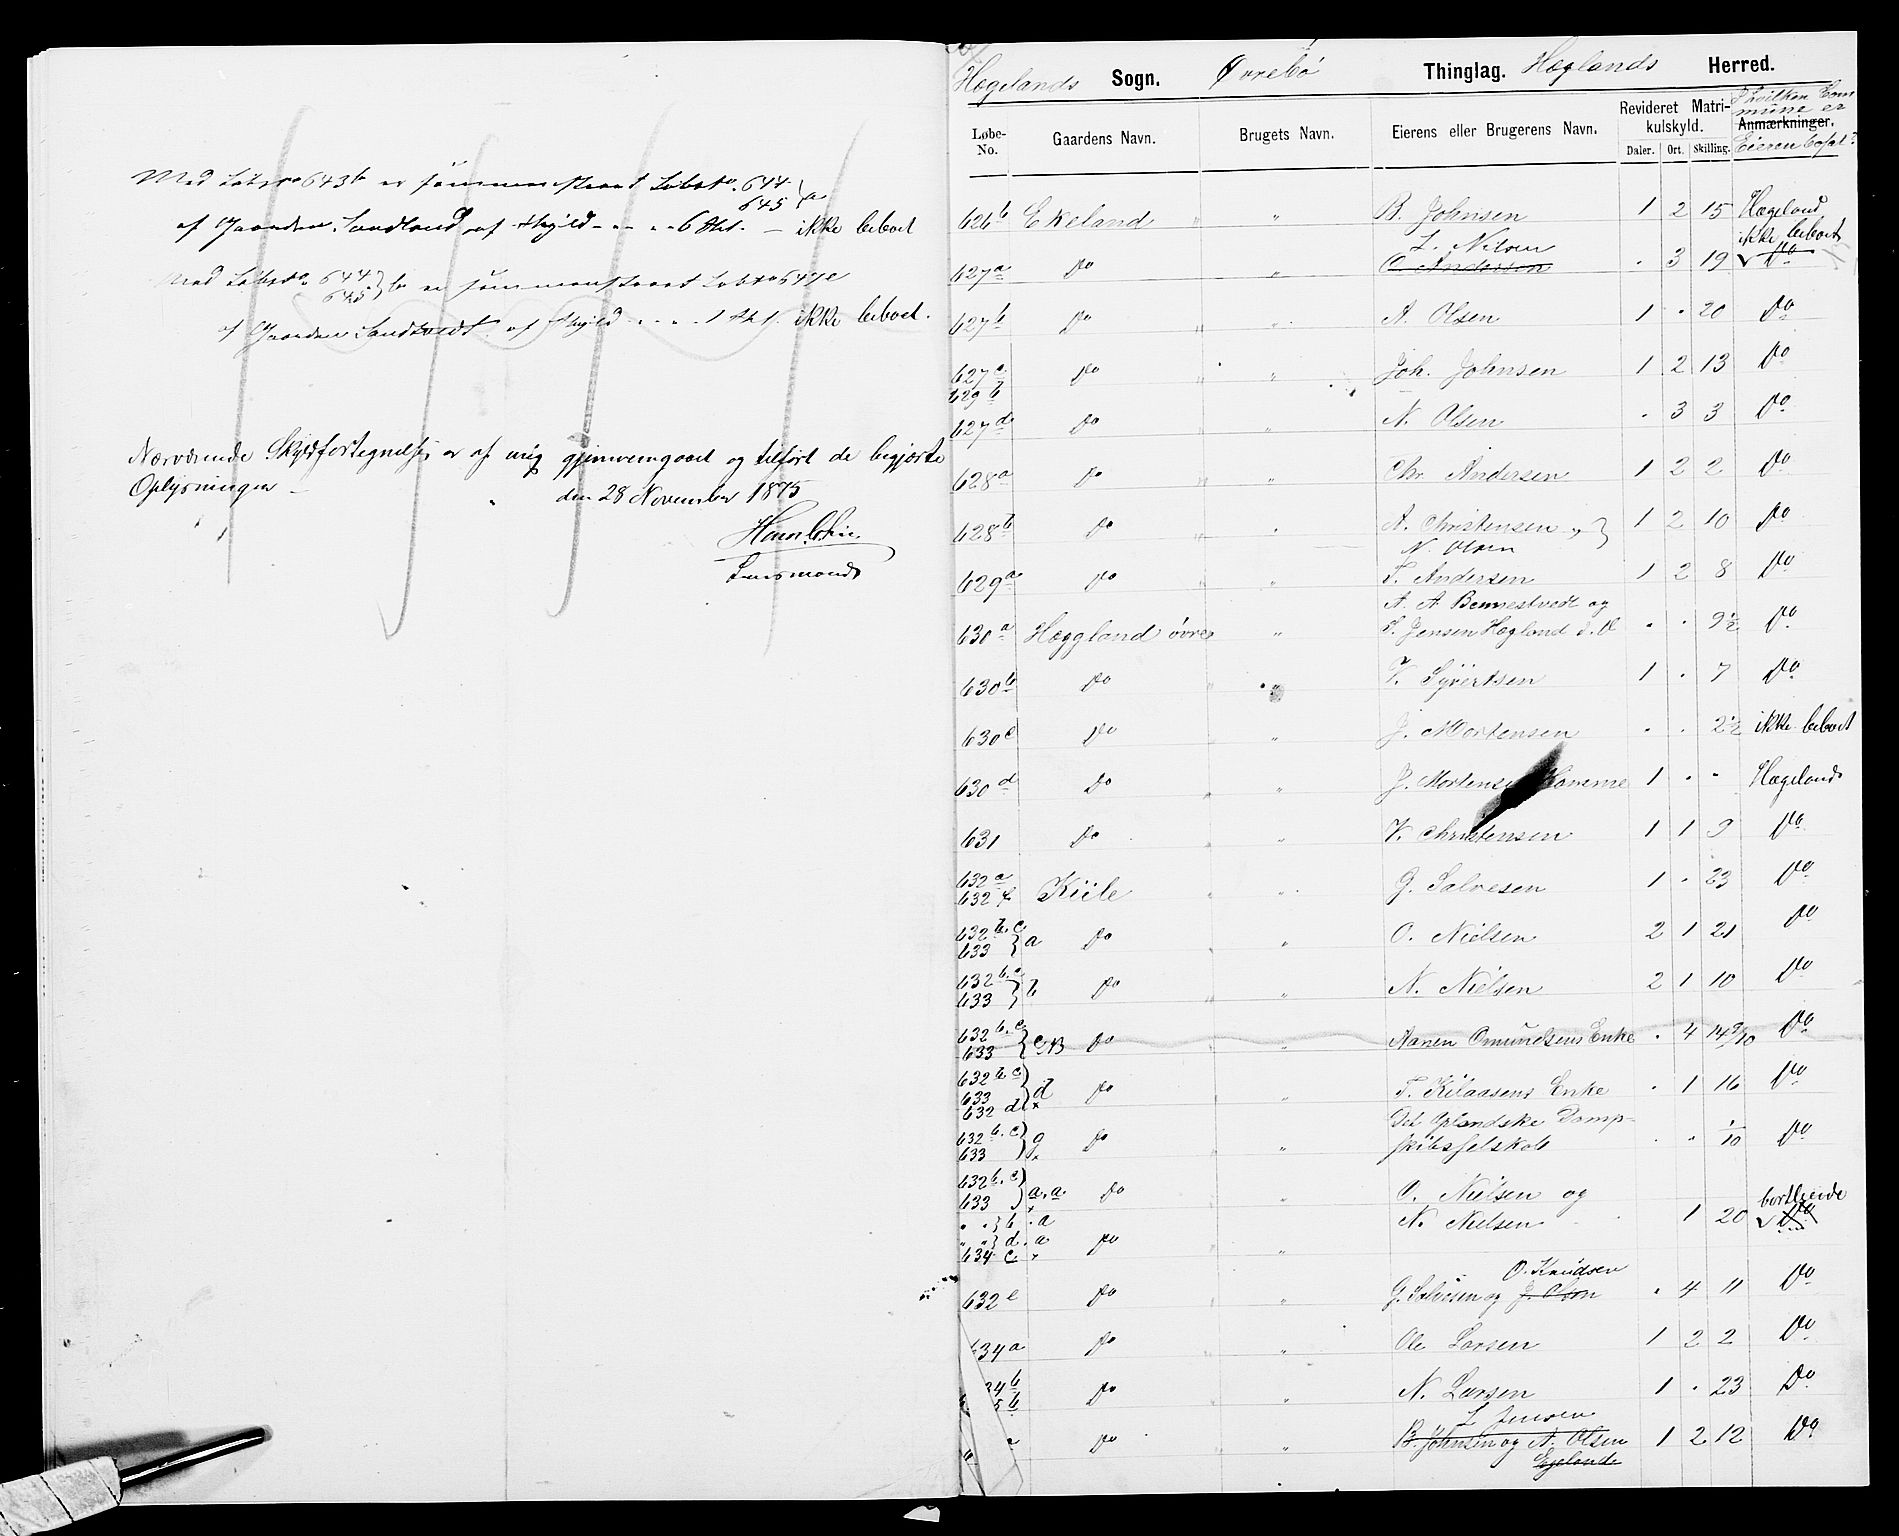 Med Løbno 643b er sammenstaaet Løbno. 644
645 } a
af Gaarden Sandland af Skyld - - - 6 Skl. - ikke beboet
Med Løbno. 644
645 } b er sammenstaaet Løbno 644c
af Gaarden Sandtvedt af Skyld - - - 1 Skl. ikke beboet.
Nærværende Skyldfortegnelse er af mig gjennemgaaet og tilført de begjærte
Oplysninger -
den 28 November 1875
Lensmand
Hægelands Sogn. Øvrebö Thinglag. Hæglands Herred.
Løbe-No. Gaardens Navn. Brugets Navn. Eierens eller Brugerens Navn. Revideret Matrikulskyld. Daler. Ort. Skilling. Anmærkninger. I hvilken Commune er Eieren bosat?
626b Ekeland " " B. Johnsen 1 2 15 Hægeland
L. Nilsen ikke beboet
627a Do " O. Andersen . 3 19 Do
627b Do " " A. Olsen 1 . 20 Do
627c Do " " Joh. Johnsen 1 2 13 Do
629b
627d Do " " N. Olsen . 3 3 Do
628a Do " " Chr. Andersen 1 2 2 Do
628b Do " " A. Christensen " } 1 2 10 Do
N. Olsen
629a Do " " T. Andersen 1 2 8 Do
A. A. Bennestvedt og
630a Hæggland övre " T. Jensen Hægland d. V . . 9½ Do
630b Do " " V. Syvertsen 1 . 7 Do
630c Do " J. Mortensen . . 2½ ikke beboet
630d Do " " J. Mortensen Homme 1 . . Hægeland
631 Do " " V. Christensen 1 1 9 Do
632a
632f Kiile " " G. Salvesen 1 . 23 Do
632b.c
633 } a Do " O. Nielsen 2 1 21 Do
632b.c
633 } b Do " " N. Nielsen 2 1 10 Do
632b.c
633 } c Do " Aanen Omundsens Enke . 4 14 9/10 Do
632b.c
633 } d Do " T. Kilaasens Enke . 1 16 Do
632d x
Det Oplandske Damp-
632b.c
633 } g Do " " skibsselskab . " 1/10 Do
632b.c
633 } a,a Do " O. Nielsen og bortleiede
" " } b.a N. Nielsen 1 20 Do
" " } d.a Do " "
634c x
O. Knudsen
632e Do " " G. Salvesen og J. Olsen . 4 11 Do
634a Do " " Ole Larsen 1 2 2 Do
34b
5b Do " " N. Larsen 1 . 23 Do
L Jensen
Do " " B. Johnsen og A. Olsen 1 2 12 Do
Egelands